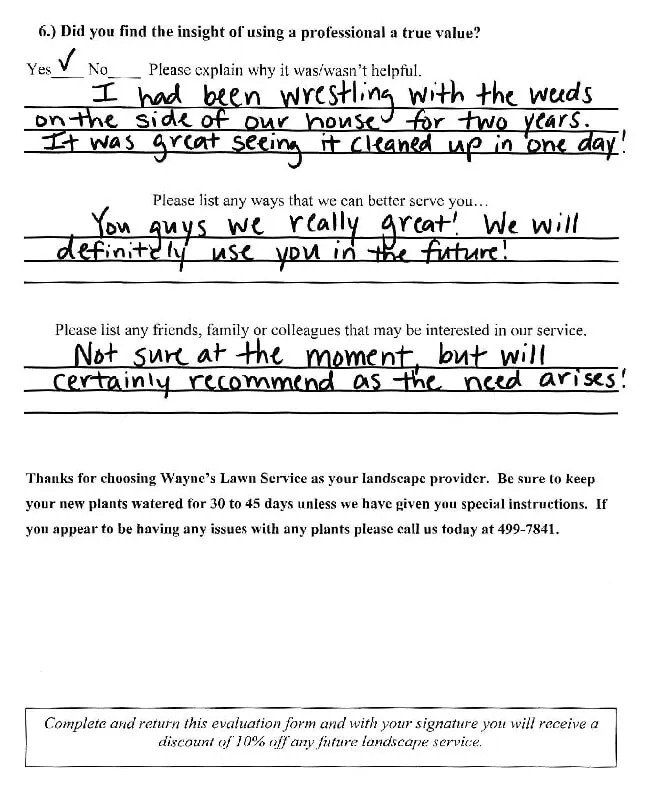 6.) Did you find the insight of using a professional a true value?
Yes ✓ No____ Please explain why it was/wasn't helpful.
I had been wrestling with the weeds
on the side of our house for two years.
It was great seeing it cleaned up in one day!
Please list any ways that we can better serve you...
You guys we really great! We will
definitely use you in the future!
Please list any friends, family or colleagues that may be interested in our service.
Not sure at the moment, but will
certainly recommend as the need arises!
Thanks for choosing Wayne's Lawn Service as your landscape provider. Be sure to keep
your new plants watered for 30 to 45 days unless we have given you special instructions. If
you appear to be having any issues with any plants please call us today at 499-7841.
Complete and return this evaluation form and with your signature you will receive a
discount of 10% off any future landscape service.